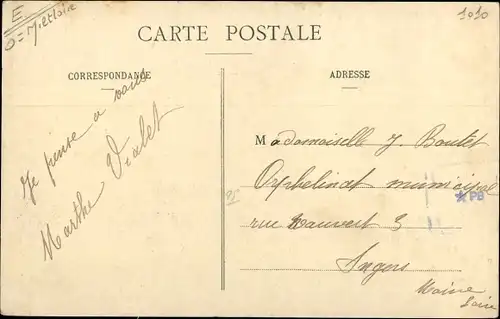 E
1010
CARTE POSTALE
CORRESPONDANCE
Je pense a vous
Marthe Vialet
ADRESSE
Mademoiselle J. Boutet
Orphelinat municipal
rue 3
Angers
Maine
Loire
PB